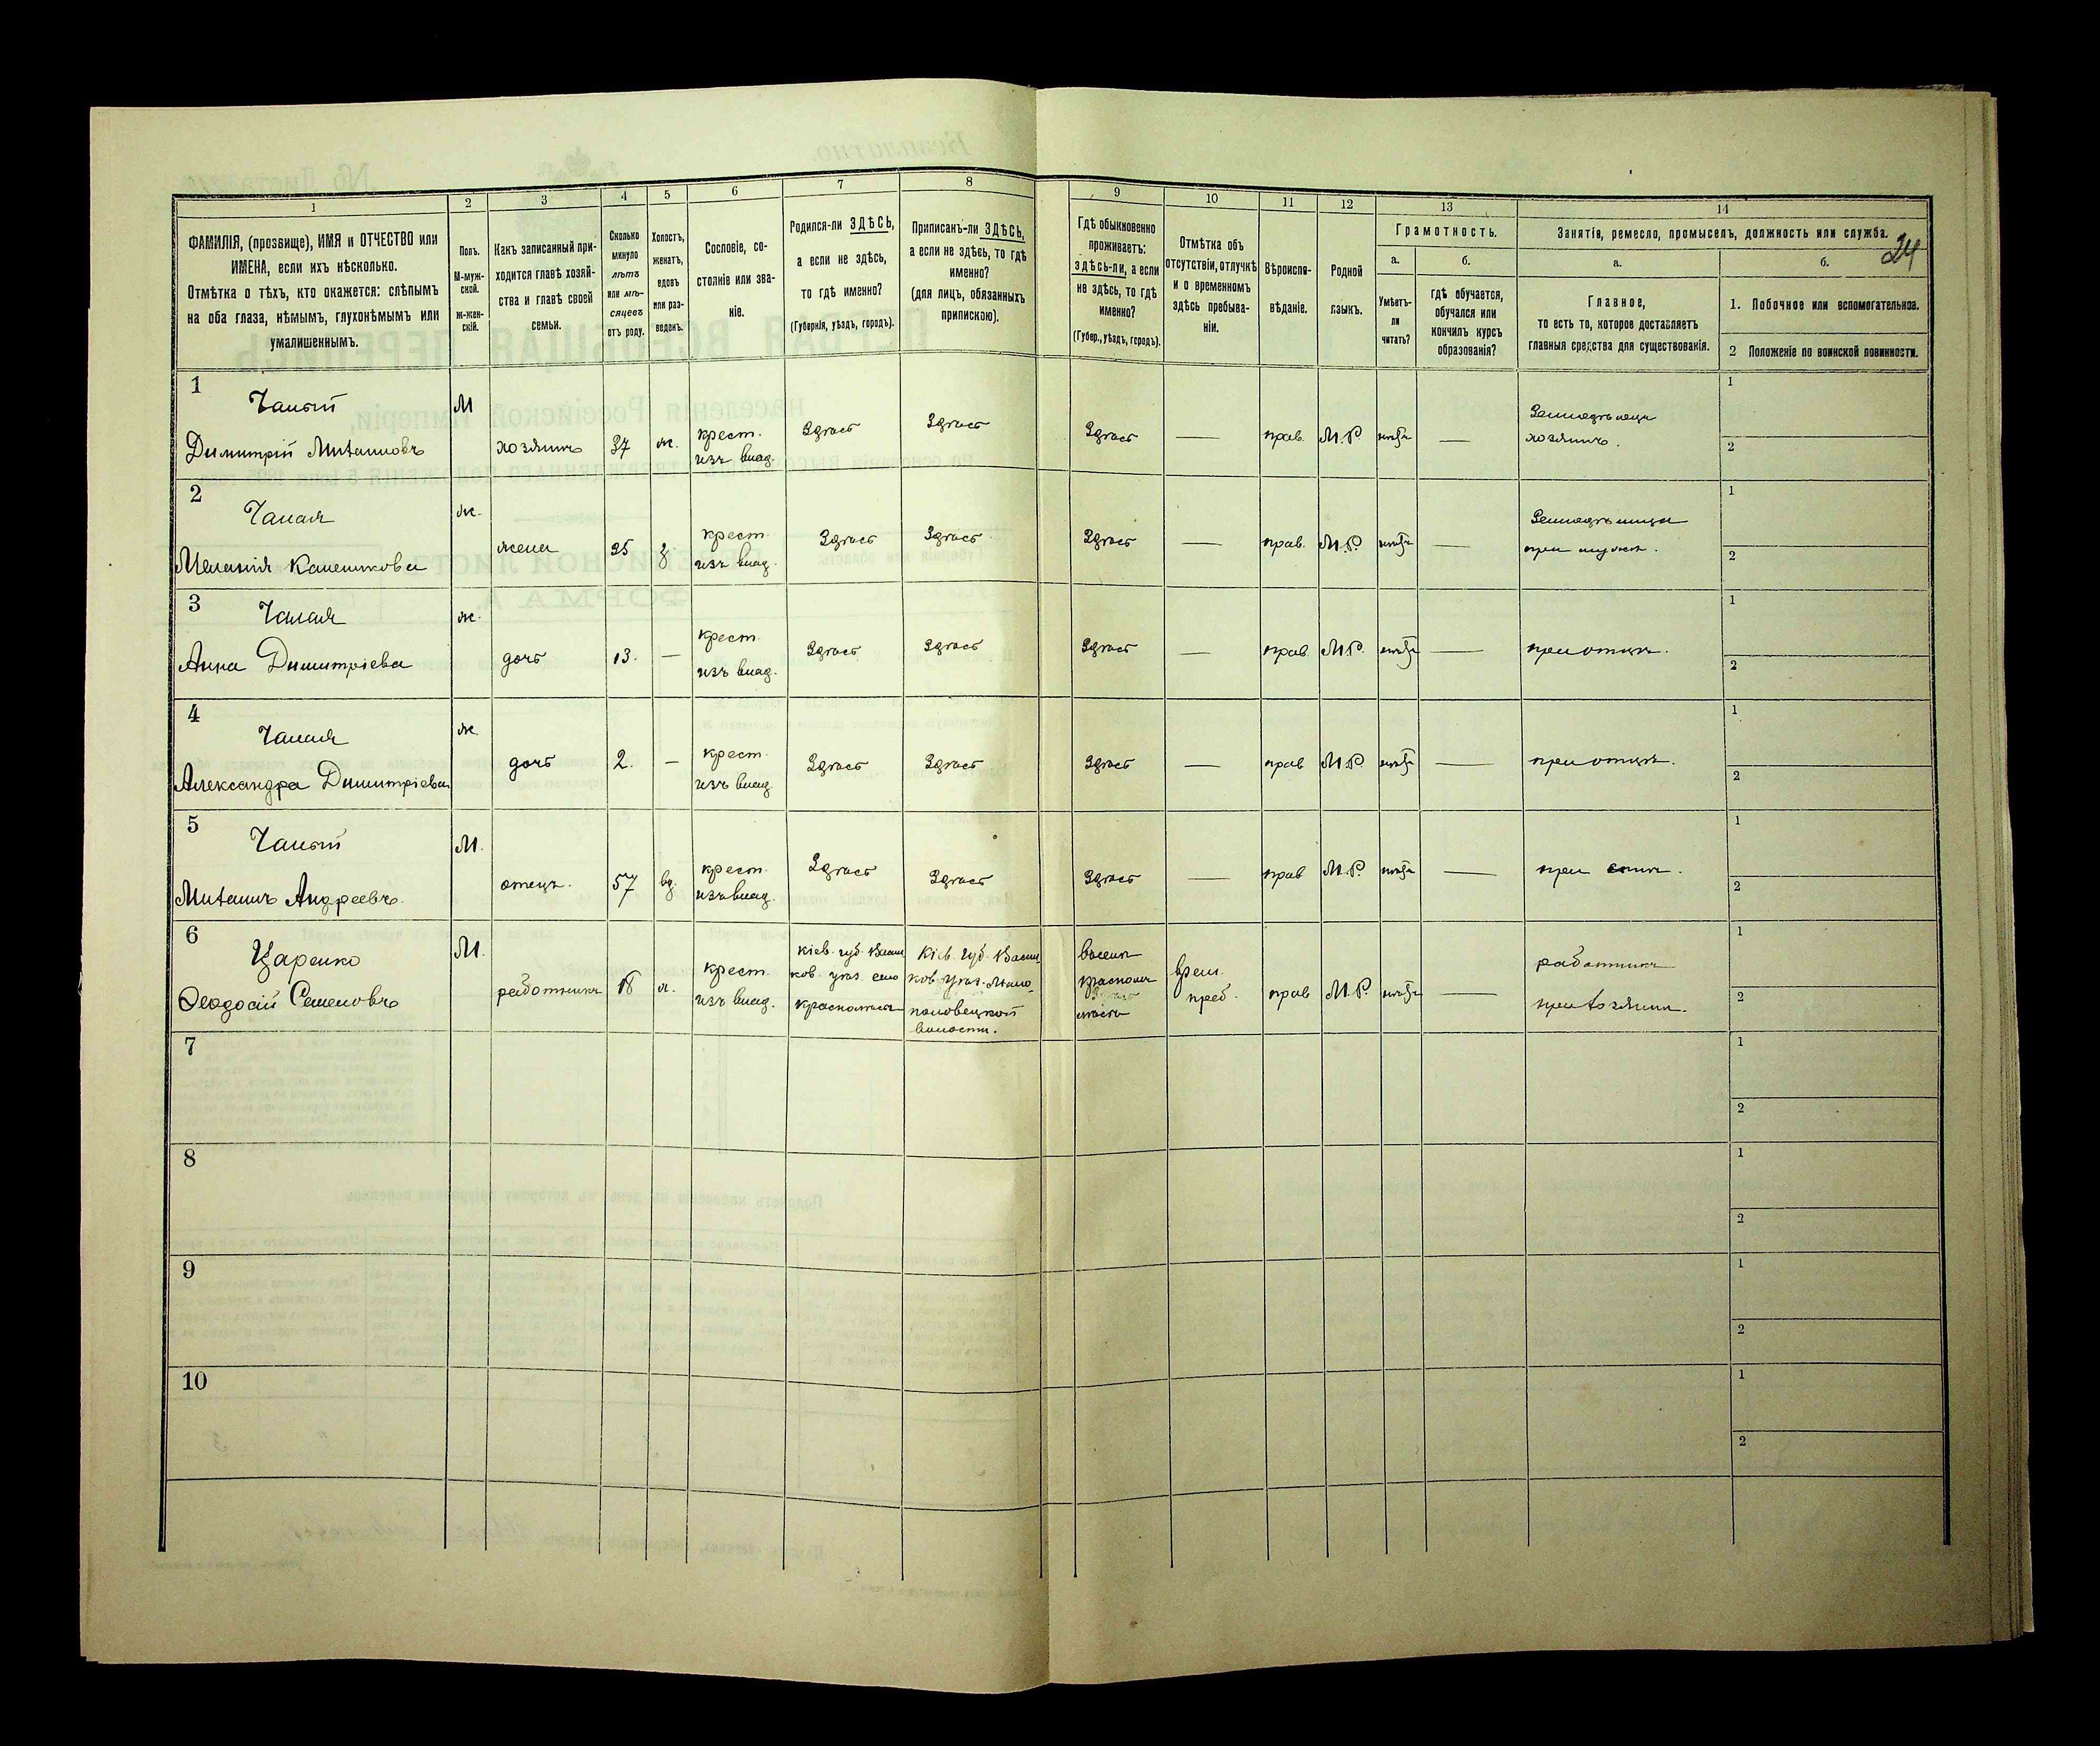 24
1 2 3 4 5 6 7 8 9 10 11 12 13 14
ФАМИЛІЯ, (прозвище), ИМЯ и ОТЧЕСТВО или
ИМЕНА, если ихъ нѣсколько.
Отмѣтка о тѣхъ, кто окажется: слѣпымъ
на оба глаза, нѣмымъ, глухонѣмымъ или
умалишеннымъ.
Полъ.
М-муж-
ской.
Ж-жен-
скій.
Какъ записанный при-
ходится главѣ хозяй-
ства и главѣ своей
семьи.
Сколько
минуло
лѣтъ
или мѣ-
сяцевъ
отъ роду.
Холостъ,
женатъ,
вдовъ
или раз-
веденъ.
Сословіе, со-
стояніе или зва-
ніе.
Родился-ли ЗДѢСЬ,
а если не здѣсь,
то гдѣ именно?
(Губернія, уѣздъ, городъ).
Приписанъ-ли ЗДѢСЬ,
а если не здѣсь, то гдѣ
именно?
(для лицъ, обязанныхъ
припискою).
Гдѣ обыкновенно
проживаетъ:
здѣсь-ли, а если
не здѣсь, то гдѣ
именно?
(Губер., уѣздъ, городъ).
Отмѣтка объ
отсутствіи, отлучкѣ
и о временномъ
здѣсь пребыва-
ніи.
Вѣроиспо-
вѣданіе.
Родной
языкъ.
Грамотность.
а.
Умѣетъ-
ли
читать?
б.
гдѣ обучается,
обучался или
кончилъ курсъ
образованія?
Занятія, ремесло, промыселъ, должность или служба.
а.
Главное,
то есть то, которое доставляетъ
главныя средства для существованія.
б.
1. Побочное или вспомогательное.
2 Положеніе по воинской повинности.
1
Чалый
Димитрій Михаиловъ
М
хозяинъ
37
ж.
крест.
изъ влад.
Здѣсь
Здѣсь
Здѣсь
—
прав.
М.Р.
нѣтъ
—
Земледѣлецъ
хозяинъ.
1
2
2
Чалая
Меланія
ж.
жена
35
з
крест.
изъ влад.
Здѣсь
Здѣсь
Здѣсь
—
прав.
М.Р.
нѣтъ
—
при мужѣ.
1
2
3
Чалая
Анна Димитріева
ж.
дочь
13.
—
крест.
изъ влад.
Здѣсь
Здѣсь
Здѣсь
—
прав.
М.Р.
нѣтъ
—
при отцѣ.
1
2
4
Чалая
Александра Димитріева
ж
дочь
2.
—
крест.
изъ влад.
Здѣсь
Здѣсь
Здѣсь
—
прав
М.Р.
нѣтъ
—
при отцѣ.
1
2
5
Чалый
Михаилъ Андреевъ.
М.
отецъ.
57
вд.
крест.
изъ влад.
Здѣсь
Здѣсь
Здѣсь
—
прав
М.Р.
нѣтъ
—
при сынѣ.
1
2
6
Царенко
Ѳеодосій Семеновъ
М.
работникъ
18
х.
крест.
изъ влад.
Кіев. губ. Васил
ков. уѣз. село
Кіев. губ. Васил
ков. уѣз. Мало-
половецкой
волости.
врем.
преб.
прав
М.Р.
нѣтъ
—
работникъ
при хозяинѣ.
1
2
7
1
2
8
1
2
9
1
2
10
1
2